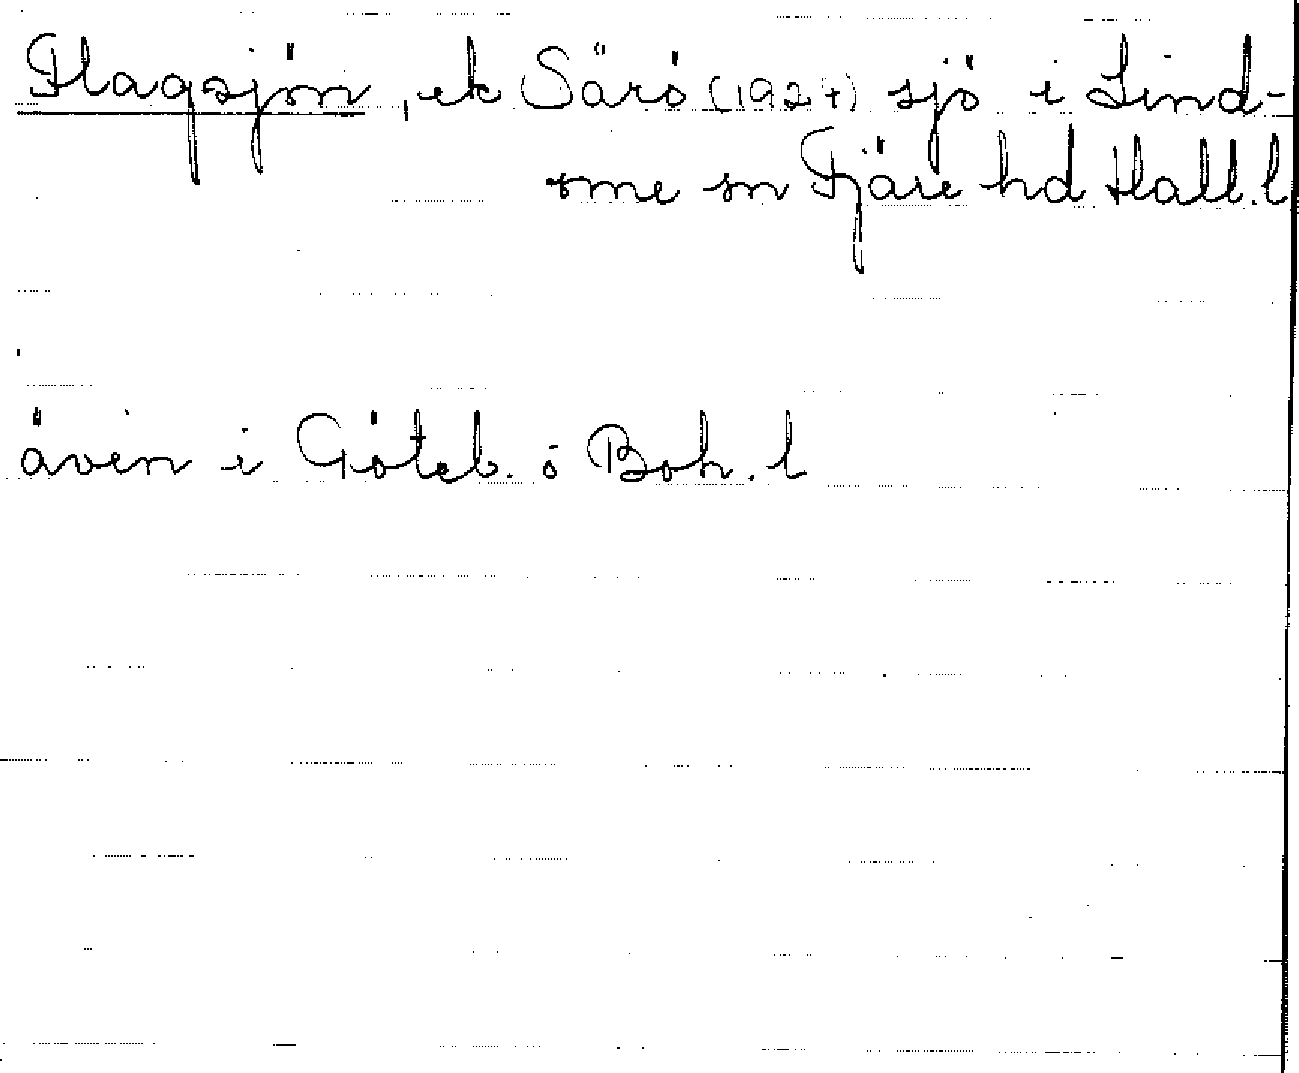 Flagsjön, ek Särö (1927) sjö i Lind-
ome sn Fjäre hd Hall.l
även i Göteb. o Boh. l